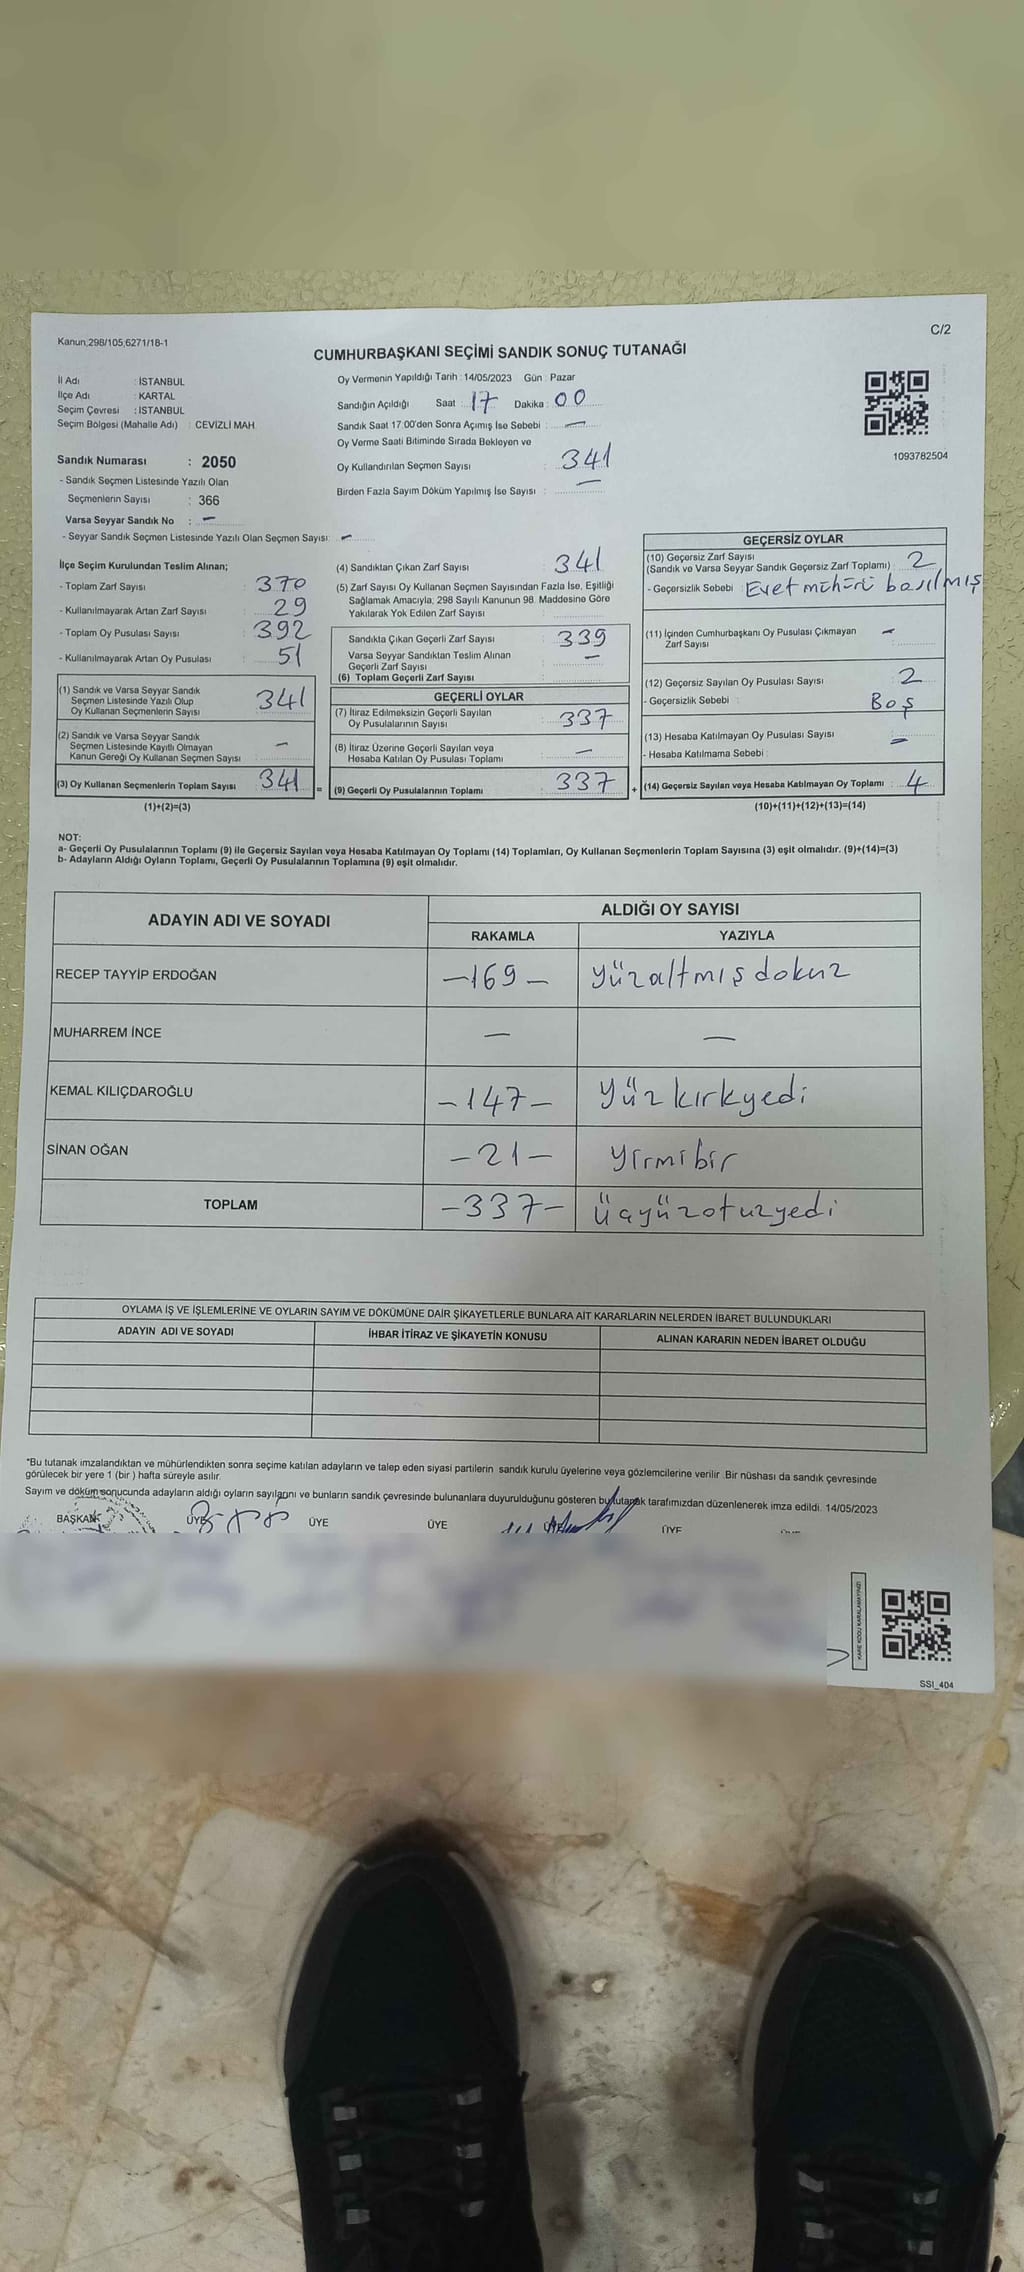 Kanun,298/105,6271/18-1
C/2
CUMHURBAŞKANI SEÇİMİ SANDIK SONUÇ TUTANAĞI
İl Adı : İSTANBUL
İlçe Adı : KARTAL
Seçim Çevresi : İSTANBUL
Seçim Bölgesi (Mahalle Adı) : CEVİZLİ MAH
Sandık Numarası : 2050
- Sandık Seçmen Listesinde Yazılı Olan
Seçmenlerin Sayısı : 366
Varsa Seyyar Sandık No : —
- Seyyar Sandık Seçmen Listesinde Yazılı Olan Seçmen Sayısı: —
Oy Vermenin Yapıldığı Tarih : 14/05/2023 Gün : Pazar
Sandığın Açıldığı Saat : 17 Dakika : 00
Sandık Saat 17.00'den Sonra Açımış İse Sebebi : —
Oy Verme Saati Bitiminde Sırada Bekleyen ve
Oy Kullandırılan Seçmen Sayısı : 341
Birden Fazla Sayım Döküm Yapılmış İse Sayısı : —
1093782504
İlçe Seçim Kurulundan Teslim Alınan;
- Toplam Zarf Sayısı : 370
- Kullanılmayarak Artan Zarf Sayısı : 29
- Toplam Oy Pusulası Sayısı : 392
- Kullanılmayarak Artan Oy Pusulası : 51
(1) Sandık ve Varsa Seyyar Sandık
Seçmen Listesinde Yazılı Olup
Oy Kullanan Seçmenlerin Sayısı : 341
(2) Sandık ve Varsa Seyyar Sandık
Seçmen Listesinde Kayıtlı Olmayan
Kanun Gereği Oy Kullanan Seçmen Sayısı : —
(3) Oy Kullanan Seçmenlerin Toplam Sayısı : 341
(1)+(2)=(3)
(4) Sandıktan Çıkan Zarf Sayısı : 341
(5) Zarf Sayısı Oy Kullanan Seçmen Sayısından Fazla İse, Eşitliği
Sağlamak Amacıyla, 298 Sayılı Kanunun 98. Maddesine Göre
Yakılarak Yok Edilen Zarf Sayısı :
Sandıkta Çıkan Geçerli Zarf Sayısı : 339
Varsa Seyyar Sandıktan Teslim Alınan
Geçerli Zarf Sayısı : —
(6) Toplam Geçerli Zarf Sayısı :
GEÇERLİ OYLAR
(7) İtiraz Edilmeksizin Geçerli Sayılan
Oy Pusulalarının Sayısı : 337
(8) İtiraz Üzerine Geçerli Sayılan veya
Hesaba Katılan Oy Pusulası Toplamı : —
= (9) Geçerli Oy Pusulalarının Toplamı : 337
GEÇERSİZ OYLAR
(10) Geçersiz Zarf Sayısı
(Sandık ve Varsa Seyyar Sandık Geçersiz Zarf Toplamı) : 2
- Geçersizlik Sebebi : Evet mühürü basılmış
(11) İçinden Cumhurbaşkanı Oy Pusulası Çıkmayan
Zarf Sayısı : —
(12) Geçersiz Sayılan Oy Pusulası Sayısı : 2
- Geçersizlik Sebebi : Boş
(13) Hesaba Katılmayan Oy Pusulası Sayısı : —
- Hesaba Katılmama Sebebi :
+ (14) Geçersiz Sayılan veya Hesaba Katılmayan Oy Toplamı : 4
(10)+(11)+(12)+(13)=(14)
NOT:
a- Geçerli Oy Pusulalarının Toplamı (9) ile Geçersiz Sayılan veya Hesaba Katılmayan Oy Toplamı (14) Toplamları, Oy Kullanan Seçmenlerin Toplam Sayısına (3) eşit olmalıdır. (9)+(14)=(3)
b- Adayların Aldığı Oyların Toplamı, Geçerli Oy Pusulalarının Toplamına (9) eşit olmalıdır.
ADAYIN ADI VE SOYADI ALDIĞI OY SAYISI
RAKAMLA YAZIYLA
RECEP TAYYİP ERDOĞAN —169— yüzaltmışdokuz
MUHARREM İNCE — —
KEMAL KILIÇDAROĞLU —147— yüzkırkyedi
SİNAN OĞAN —21— yirmibir
TOPLAM —337— üçyüzotuzyedi
OYLAMA İŞ VE İŞLEMLERİNE VE OYLARIN SAYIM VE DÖKÜMÜNE DAİR ŞİKAYETLERLE BUNLARA AİT KARARLARIN NELERDEN İBARET BULUNDUKLARI
ADAYIN ADI VE SOYADI İHBAR İTİRAZ VE ŞİKAYETİN KONUSU ALINAN KARARIN NEDEN İBARET OLDUĞU
*Bu tutanak imzalandıktan ve mühürlendikten sonra seçime katılan adayların ve talep eden siyasi partilerin sandık kurulu üyelerine veya gözlemcilerine verilir. Bir nüshası da sandık çevresinde
görülecek bir yere 1 (bir ) hafta süreyle asılır.
Sayım ve döküm sonucunda adayların aldığı oyların sayılarını ve bunların sandık çevresinde bulunanlara duyurulduğunu gösteren bu tutanak tarafımızdan düzenlenerek imza edildi. 14/05/2023
BAŞKAN ÜYE ÜYE ÜYE ÜYE ÜYE
KARE KODU KARALAMAYINIZ!
SSI_404